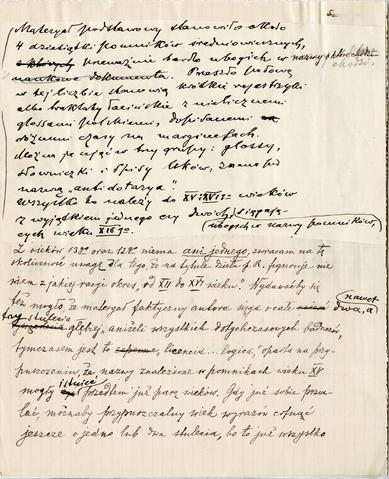 5.
Materyał podstawowy stanowiło około
4 dziesiątki pomników średniowiecznych,
z których przeważnie bardzo ubogich w nazwy, o które chodzi.
naukowe dokumenta. Przeszło połowę
w tej liczbie stanowią krótkie rejestrzyki
albo traktaty łacińskie z nielicznemi
glossami polskiemi, dopisanemi
różnemi czasy na marginesach.
Można je ująć w trzy grupy: glossy,
słowniczki i spisy leków, znane pod
nazwą „antidotarya".
Wszystko to należy do XV i XVI wieków
z wyjątkiem jednego czy dwóch, sięgają-
cych wieku XIII go. (ubogich w nazwy pomników,
Z wieków 13go oraz 12go niema ani jednego, zwracam na tę
okoliczność uwagę dla tego, że na tytule dzieła J. R. figuruje nie
wiem z jakiej racyi okres, od XII do XVI wieku. Wydawałoby się
bez mała, że materyał faktyczny autora sięga realnie nawet dwa, a
trzy stulecia głębiej, aniżeli wszystkich dotychczasowych badaczy,
tymczasem jest to licencia... logica, oparta na przy-
puszczeniu, że nazwy znalezione w pomnikach wieku XV
mogły istnieć przedtem już parę wieków. Gdy już sobie pozwa-
lać, możnaby przypuszczalny wiek wyrazów cofnąć
jeszcze o jedno lub dwa stulecia, bo to już wszystko